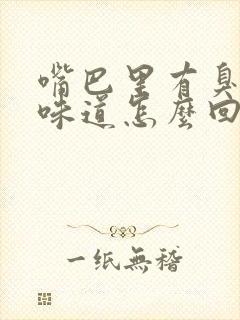 嘴巴里有臭
味道怎麼回
一纸無稽